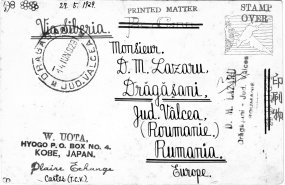 29. 5. 1929.
PRINTED MATTER
STAMP
OVER
Via Siberia.
DRĂGĂȘANI
JUD. VÂLCEA
Monsieur.
D. M. Lazaru
Drăgăşani.
Jud. Vâlcea,
(Roumanie).
Rumania.
Europe.
D. M. LAZARU
Drăgăşani - Jud. Vâlcea
印刷物
W. UOTA,
HYOGO P. O. BOX NO. 4.
KOBE, JAPAN.
Plaire Echange
Cartes (T.C.V.)